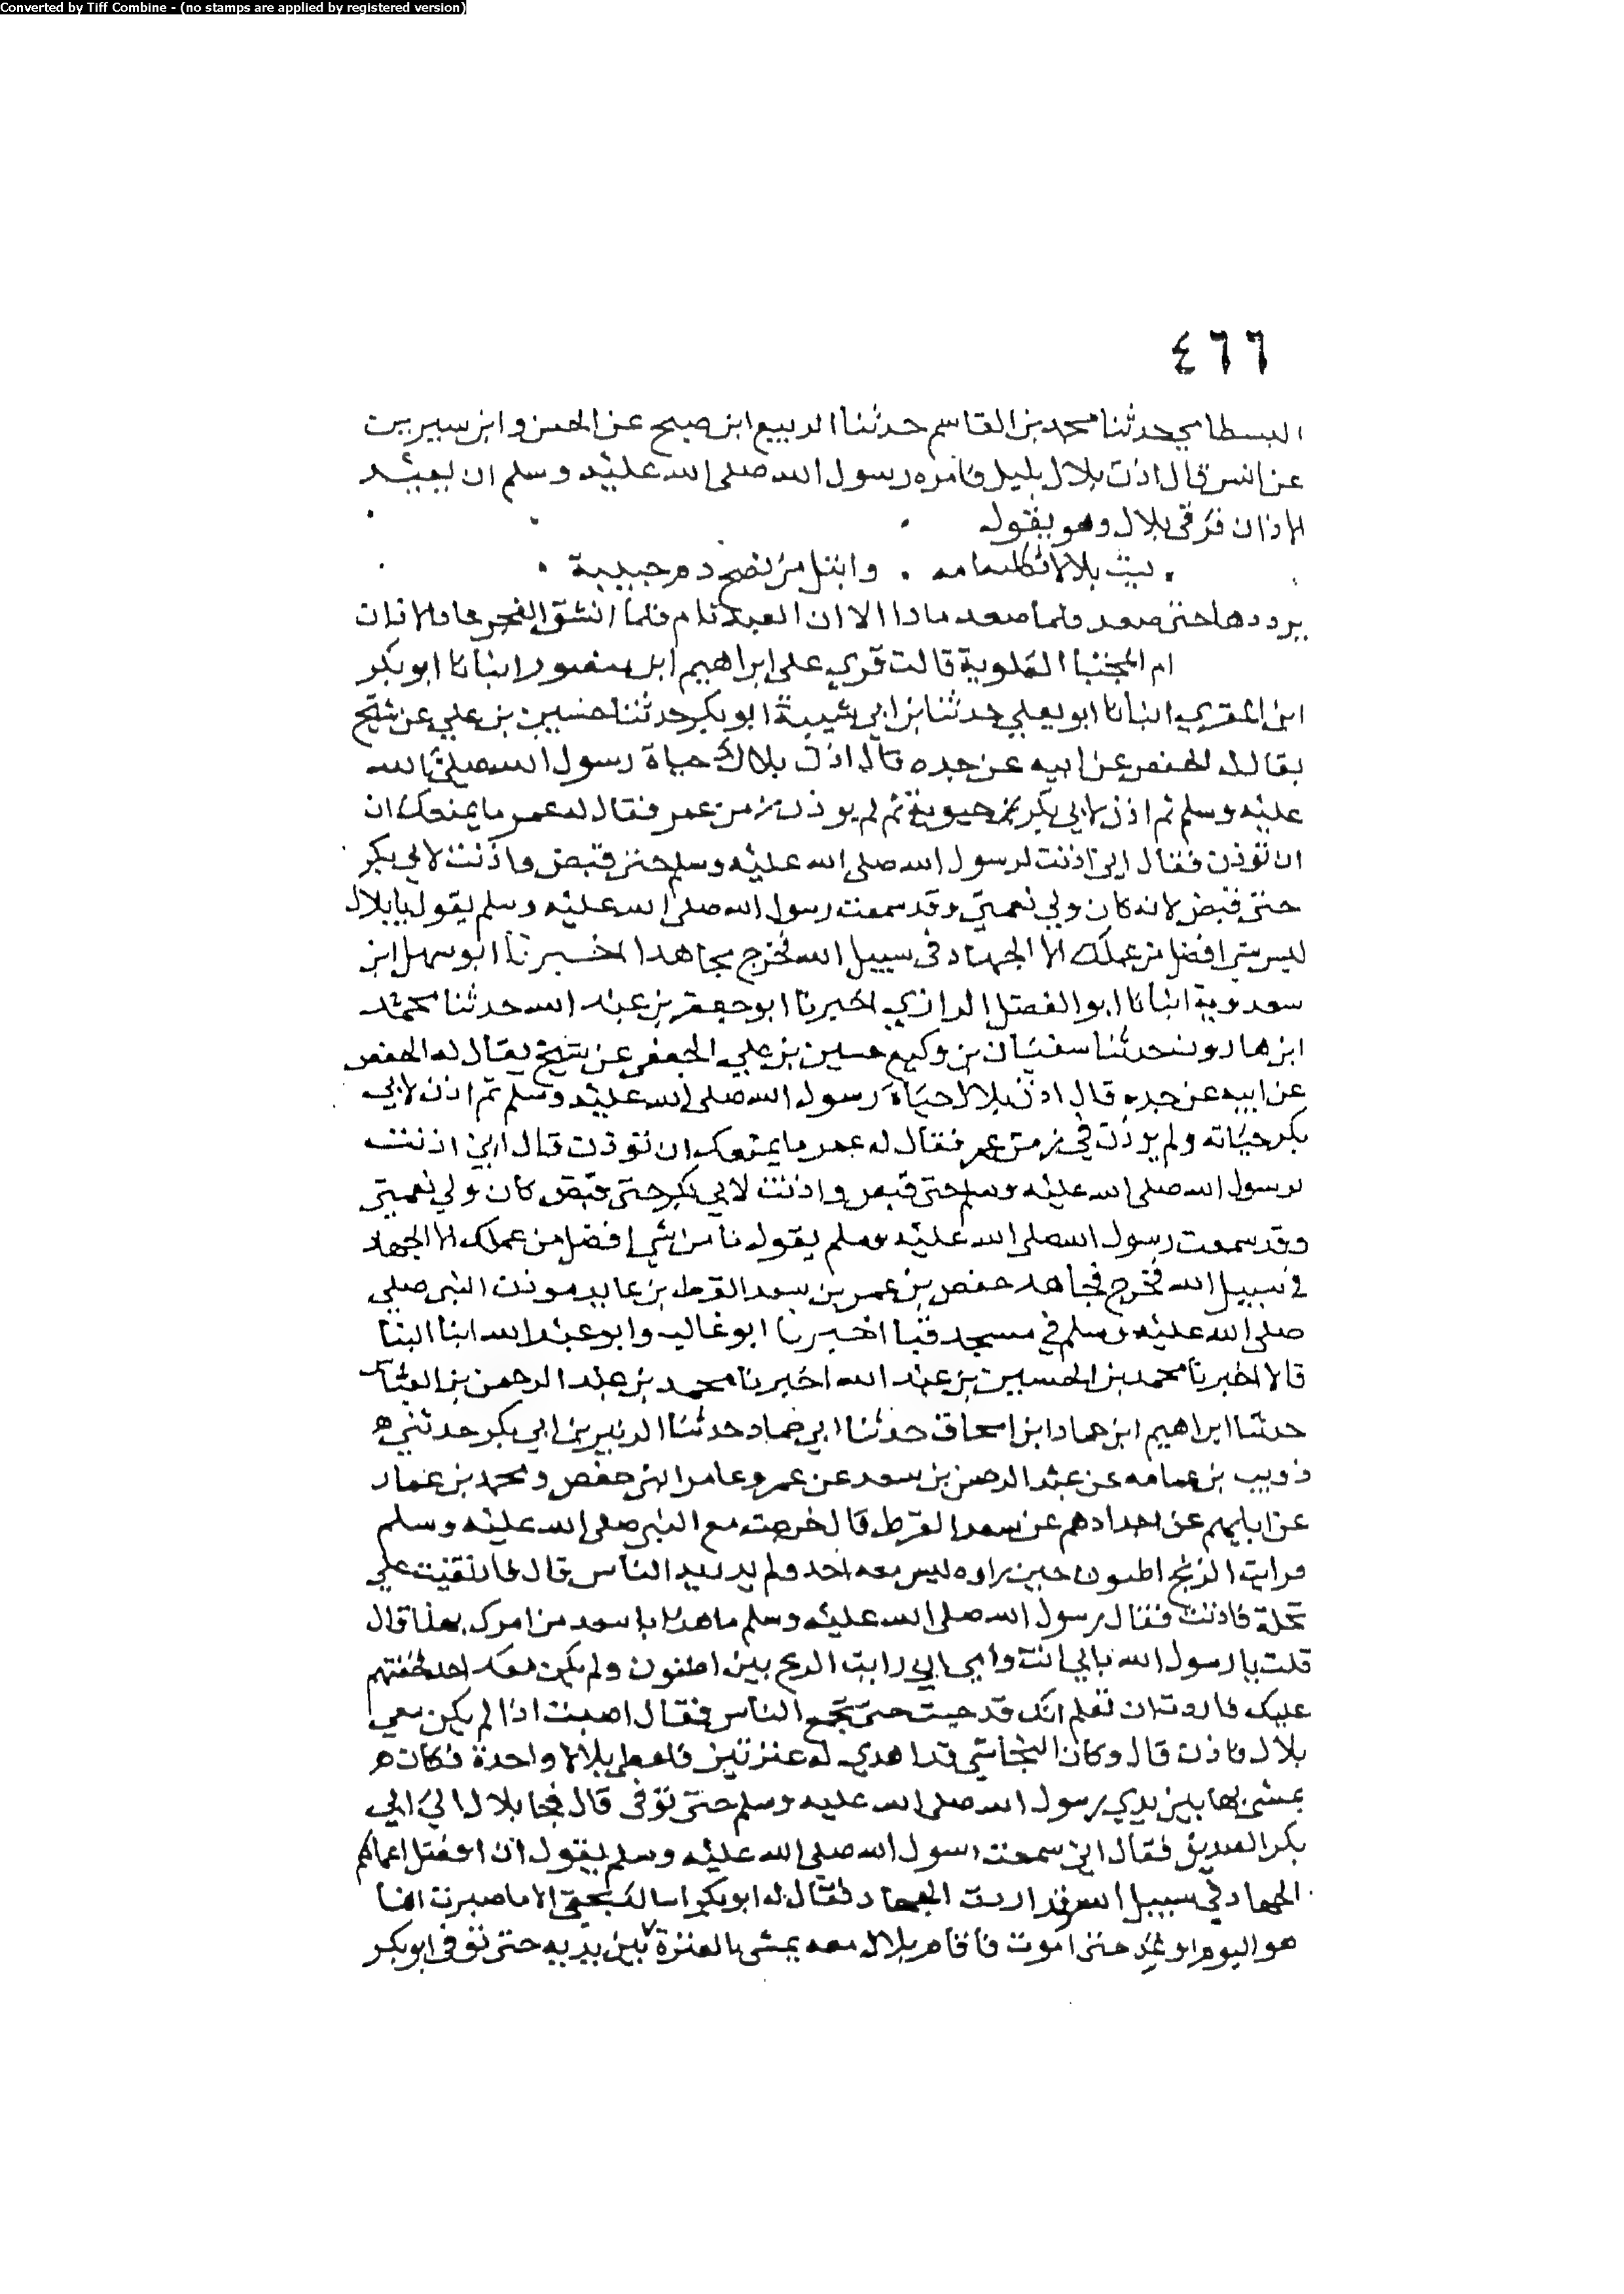 Converted by Tiff Combine - (no stamps are applied by registered version)
٤٦٦
البسطامي حدثنا محمد بن القاسم حدثنا الربيع ابن صبح عن الحسن وابن سيرين
عن انس قال اذن بلال بليل فامره رسول الله صلى الله عليه وسلم ان يعيد
الاذان فرقى بلال وهو يقول
ليت بلالا ثكلته امه . وابتل من نضح دم جبينه
يرددها حتى صعد فلما صعد مادا الا ان العبد نام فلما انشق الفجر عاد الاذان
ام المجتبا العلوية قالت قري على ابراهيم ابن منصور انبانا ابو بكر
ابن المقري انبانا ابو يعلي حدثنا بن ابي شيبة ابو بكر حدثنا حسين بن علي عن شيخ
يقال له الحفص عن ابيه عن جده قال اذن بلال حياة رسول الله صلى الله
عليه وسلم ثم اذن لابي بكر ثم لم يوذن زمن عمر فقال له عمر ما يمنعك ان
ان توذن فقال اني اذنت لرسول الله صلى الله عليه وسلم حتى قبض واذنت لابي بكر
حتى قبض لانه كان ولي نعمتي وقد سمعت رسول الله صلى الله عليه وسلم يقول يا بلال
ليس شي افضل من عملك الا الجهاد في سبيل الله فخرج مجاهدا اخبرنا ابو سهل ابن
سعدوية انبانا ابو الفضل الرازي اخبرنا ابو جعفر بن عبد الله حدثنا محمد
ابن هارون حدثنا سفيان بن وكيع حسين بن علي الجعفي عن شيخ يقال له الحفص
عن ابيه عن جده قال اذن بلال حياة رسول الله صلى الله عليه وسلم ثم اذن لابي
بكر حياته ولم يوذن في زمن عمر فقال له عمر ما يمنعك ان توذن قال اني اذنت
لرسول الله صلى الله عليه وسلم حتى قبض واذنت لابي بكر حتى قبض كان ولي نعمتي
وقد سمعت رسول الله صلى الله عليه وسلم يقول ما من شي افضل من عملك الا الجهاد
في سبيل الله فخرج فجاهد حفص بن عمر بن سعد القرط بن عايد موذن النبي صلي
صلى الله عليه وسلم في مسجد قبا اخبرنا ابو غالب وابو عبد الله ابنا البنا
قالا اخبرنا محمد بن الحسين بن عبد الله اخبرنا محمد بن عبد الرحمن بن العباس
حدثنا ابراهيم ابن حماد ابن اسحاق حدثنا ابي حماد حدثنا الزبير بن ابي بكر حدثني
ذويب بن عمامه عن عبد الرحمن بن سعد عن عمر وعامر ابني حفص ومحمد بن عمار
عن ابايهم عن اجدادهم عن سعد القرط قال خرجت مع النبي صلى الله عليه وسلم
فرايت الزنج حين راوه ليس معه احد ولم يد الناس قال فارتقيت علي
نخلة فاذنت فقال رسول الله صلى الله عليه وسلم ما هذا يا سعد من امرك بهذا قال
قلت يا رسول الله بابي انت وامي اني رايت الزنج ولم يكن معك احد فخفتهم
عليك فاردت ان تعلم انك قد جيت حتى تجمع الناس فقال اصبت اذا لم يكن معي
بلال فاذن قال وكان النجاشي قد اهدي له عنزتين فاعطي بلالا واحدة فكان
يمشي بها بين يدي رسول الله صلى الله عليه وسلم حتى توفى قال فجا بلال الي ابي
بكر الصديق فقال اني سمعت رسول الله صلى الله عليه وسلم يقول ان افضل اعمالكم
الجهاد في سبيل الله وقد اردت الجهاد فقال له ابو بكر اسالك بحقي الا ما صبرت انما
هو اليوم او غد حتى اموت فاقام بلال معه يمشى بالعنزة بين يديه حتى توفى ابو بكر